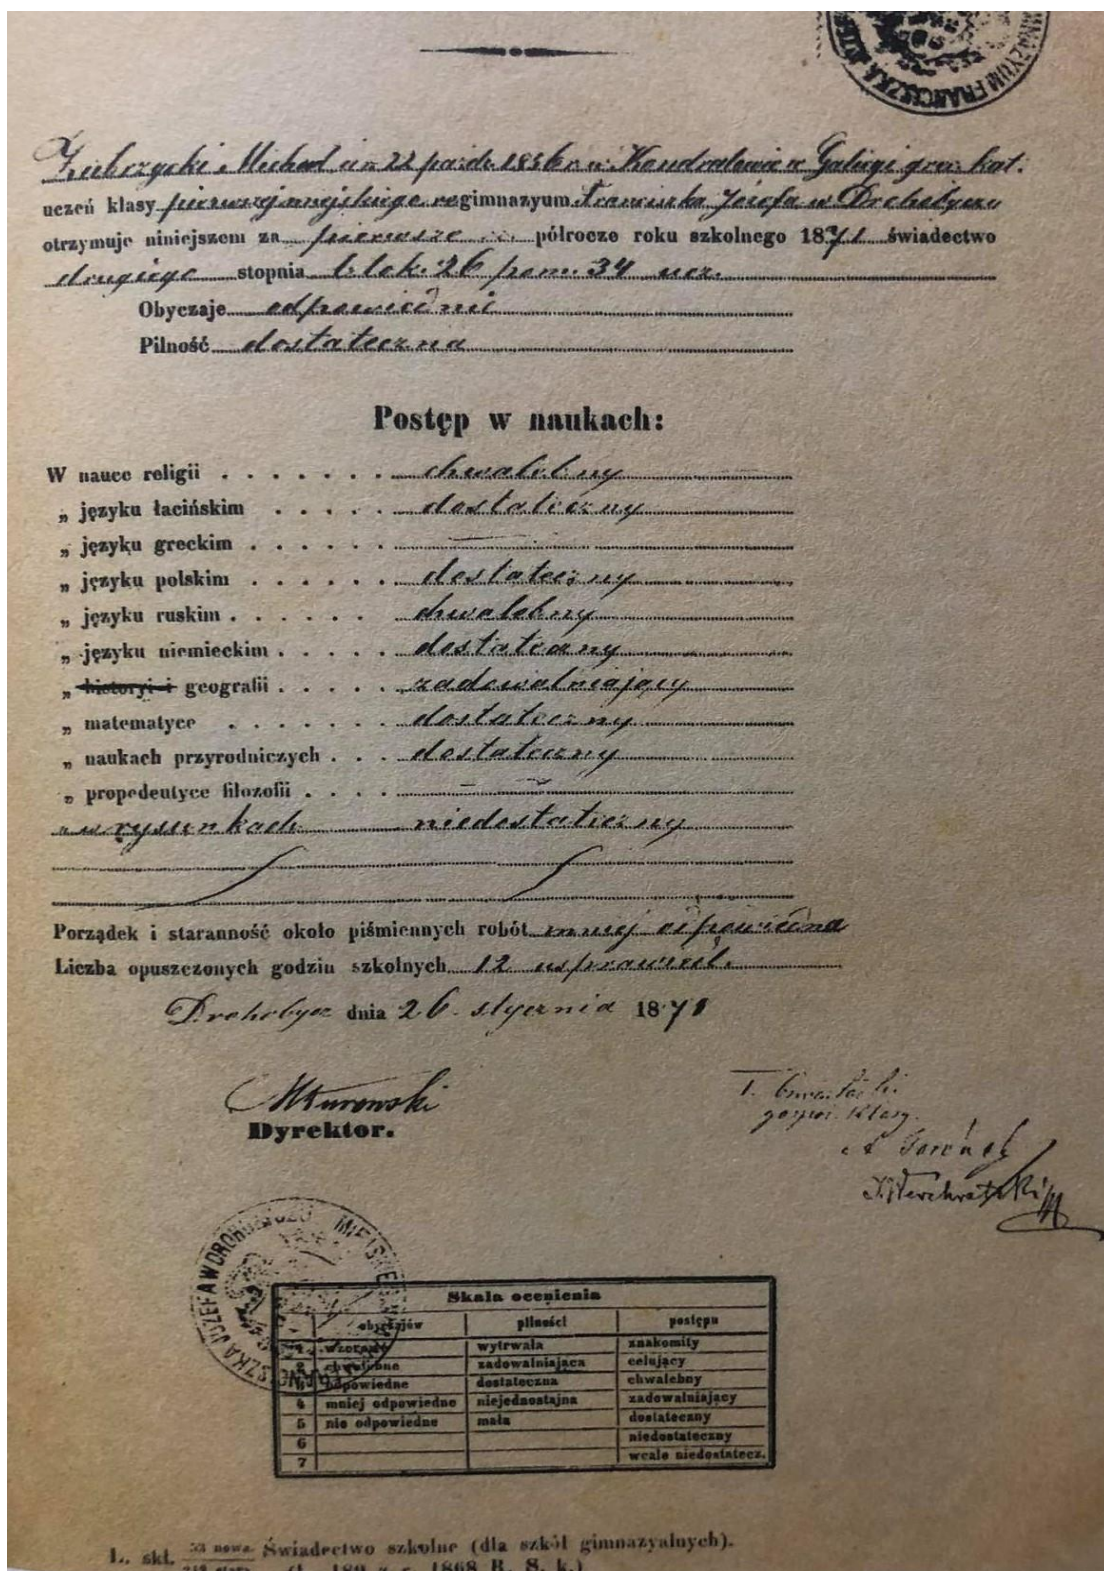 GIMNAZYUM FRANCISZKA JÓZE
Zubrzycki Michał ur. 22 paźdz. 1856 r. w Kondratowie w Galicyi grec. kat.
uczeń klasy pierwszej miejskiego re gimnazyum Franciszka Józefa w Drohobyczu
otrzymuje niniejszem za pierwsze półrocze roku szkolnego 1871 świadectwo
drugiego stopnia z lok. 26 pom. 34 ucz.
Obyczaje odpowiednie
Pilność dostateczna
Postęp w naukach:
W nauce religii . . . . . . . chwalebny
„ języku łacińskim . . . . . dostateczny
„ języku greckim . . . . . .
„ języku polskim . . . . . . dostateczny
„ języku ruskim . . . . . . chwalebny
„ języku niemieckim . . . . . dostateczny
„ historyi i geografii . . . . . zadowalniający
„ matematyce . . . . . . dostateczny
„ naukach przyrodniczych . . . dostateczny
„ propedeutyce filozofii . . . .
„ w rysunkach niedostateczny
Porządek i staranność około piśmiennych robót mniej odpowiedna
Liczba opuszczonych godzin szkolnych 12 usprawied.
Drohobycz dnia 26. stycznia 1871
Dyrektor.
gospod. klasy.
J. Werchratski
Skala ocenienia
obyczajów pilności postępu
1 wzorowe wytrwała znakomity
2 chwalebne zadowalniająca celujący
3 odpowiedne dostateczna chwalebny
4 mniej odpowiedne niejednostajna zadowalniający
5 nie odpowiedne mała dostateczny
6 niedostateczny
7 wcale niedostatecz.
L. skł. 53 nowa Świadectwo szkolne (dla szkół gimnazyalnych).
1868 R. S. k.)